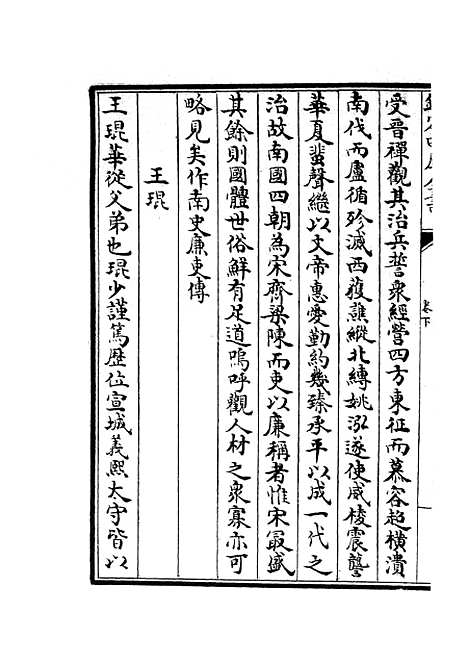 欽定四庫全書
卷下
受晉禪觀其治兵誓衆經營四方東征而慕容超橫潰
南伐而盧循殄滅西蕧譙縱北縛姚泓遂使威棱震讋
華夏蜚聲繼以文帝惠愛勤約幾臻承平以成一代之
治故南國四朝為宋齊梁陳而吏以廉稱者惟宋冣盛
其餘則國體世俗鮮有足道嗚呼觀人材之衆寡亦可
略見矣作南史廉吏傳
王琨
王琨華從父弟也琨少謹篤歴位宣城義熙太守皆以